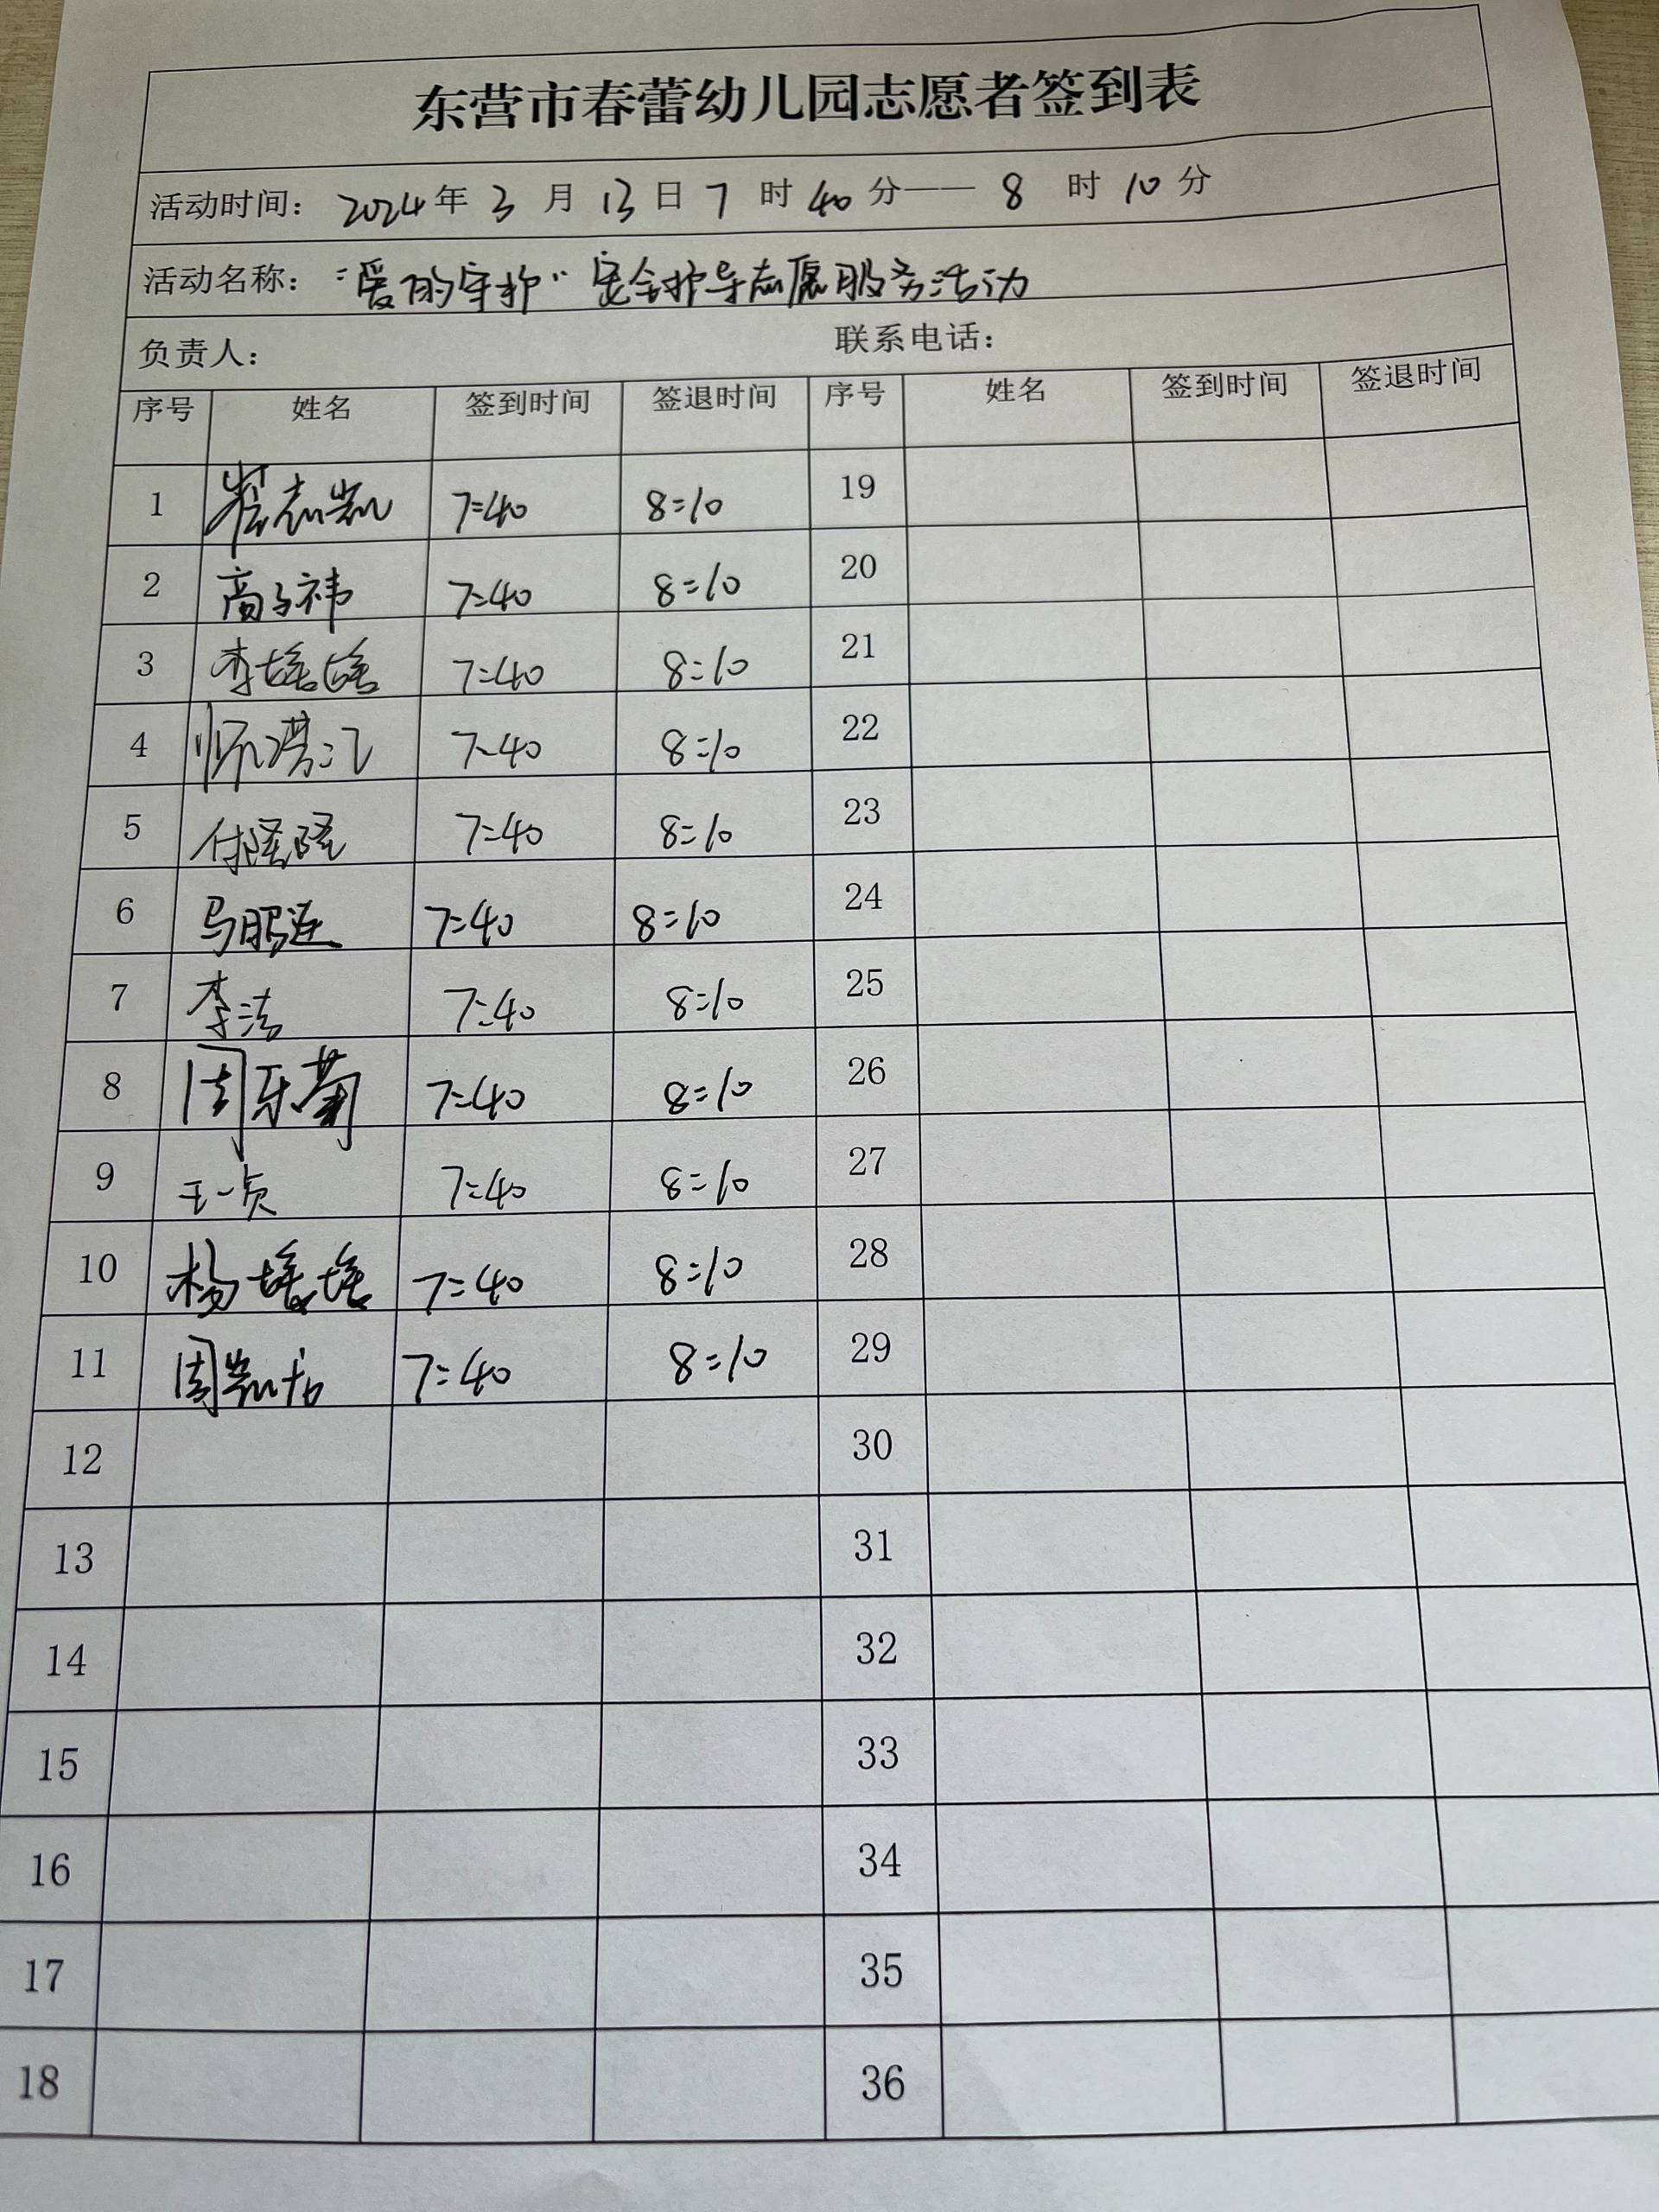 东营市春蕾幼儿园志愿者签到表
活动时间： 2024年 3 月 13 日 7 时 40 分—— 8 时 10 分
活动名称： “爱的守护”安全护导志愿服务活动
负责人： 联系电话：
序号 姓名 签到时间 签退时间 序号 姓名 签到时间 签退时间
1 崔志凯 7:40 8:10 19
2 高子祎 7:40 8:10 20
3 李瑶瑶 7:40 8:10 21
4 7:40 8:10 22
5 付隆隆 7:40 8:10 23
6 马鹏连 7:40 8:10 24
7 李洁 7:40 8:10 25
8 周乐菊 7:40 8:10 26
9 王一贞 7:40 8:10 27
10 杨瑶瑶 7:40 8:10 28
11 7:40 8:10 29
12 30
13 31
14 32
15 33
16 34
17 35
18 36